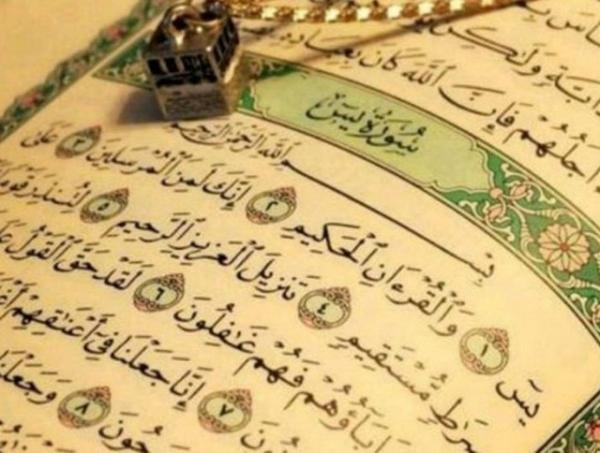 دَآبَّةٍ وَلَٰكِن
أَجَلُهُمْ فَإِنَّ ٱللَّهَ كَانَ بِعِبَادِهِ
سُورَةُ يسٓ
بِسْمِ ٱللَّهِ ٱلرَّحْمَٰنِ ٱلرَّحِيمِ
يسٓ ١ وَٱلْقُرْءَانِ ٱلْحَكِيمِ ٢ إِنَّكَ لَمِنَ ٱلْمُرْسَلِينَ ٣ عَلَىٰ
صِرَٰطٍ مُّسْتَقِيمٍ ٤ تَنزِيلَ ٱلْعَزِيزِ ٱلرَّحِيمِ ٥ لِتُنذِرَ قَوْمًا
ءَابَآؤُهُمْ فَهُمْ غَٰفِلُونَ ٦ لَقَدْ حَقَّ ٱلْقَوْلُ
٧ إِنَّا جَعَلْنَا فِىٓ أَعْنَٰقِهِمْ
٨ وَجَعَلْنَا